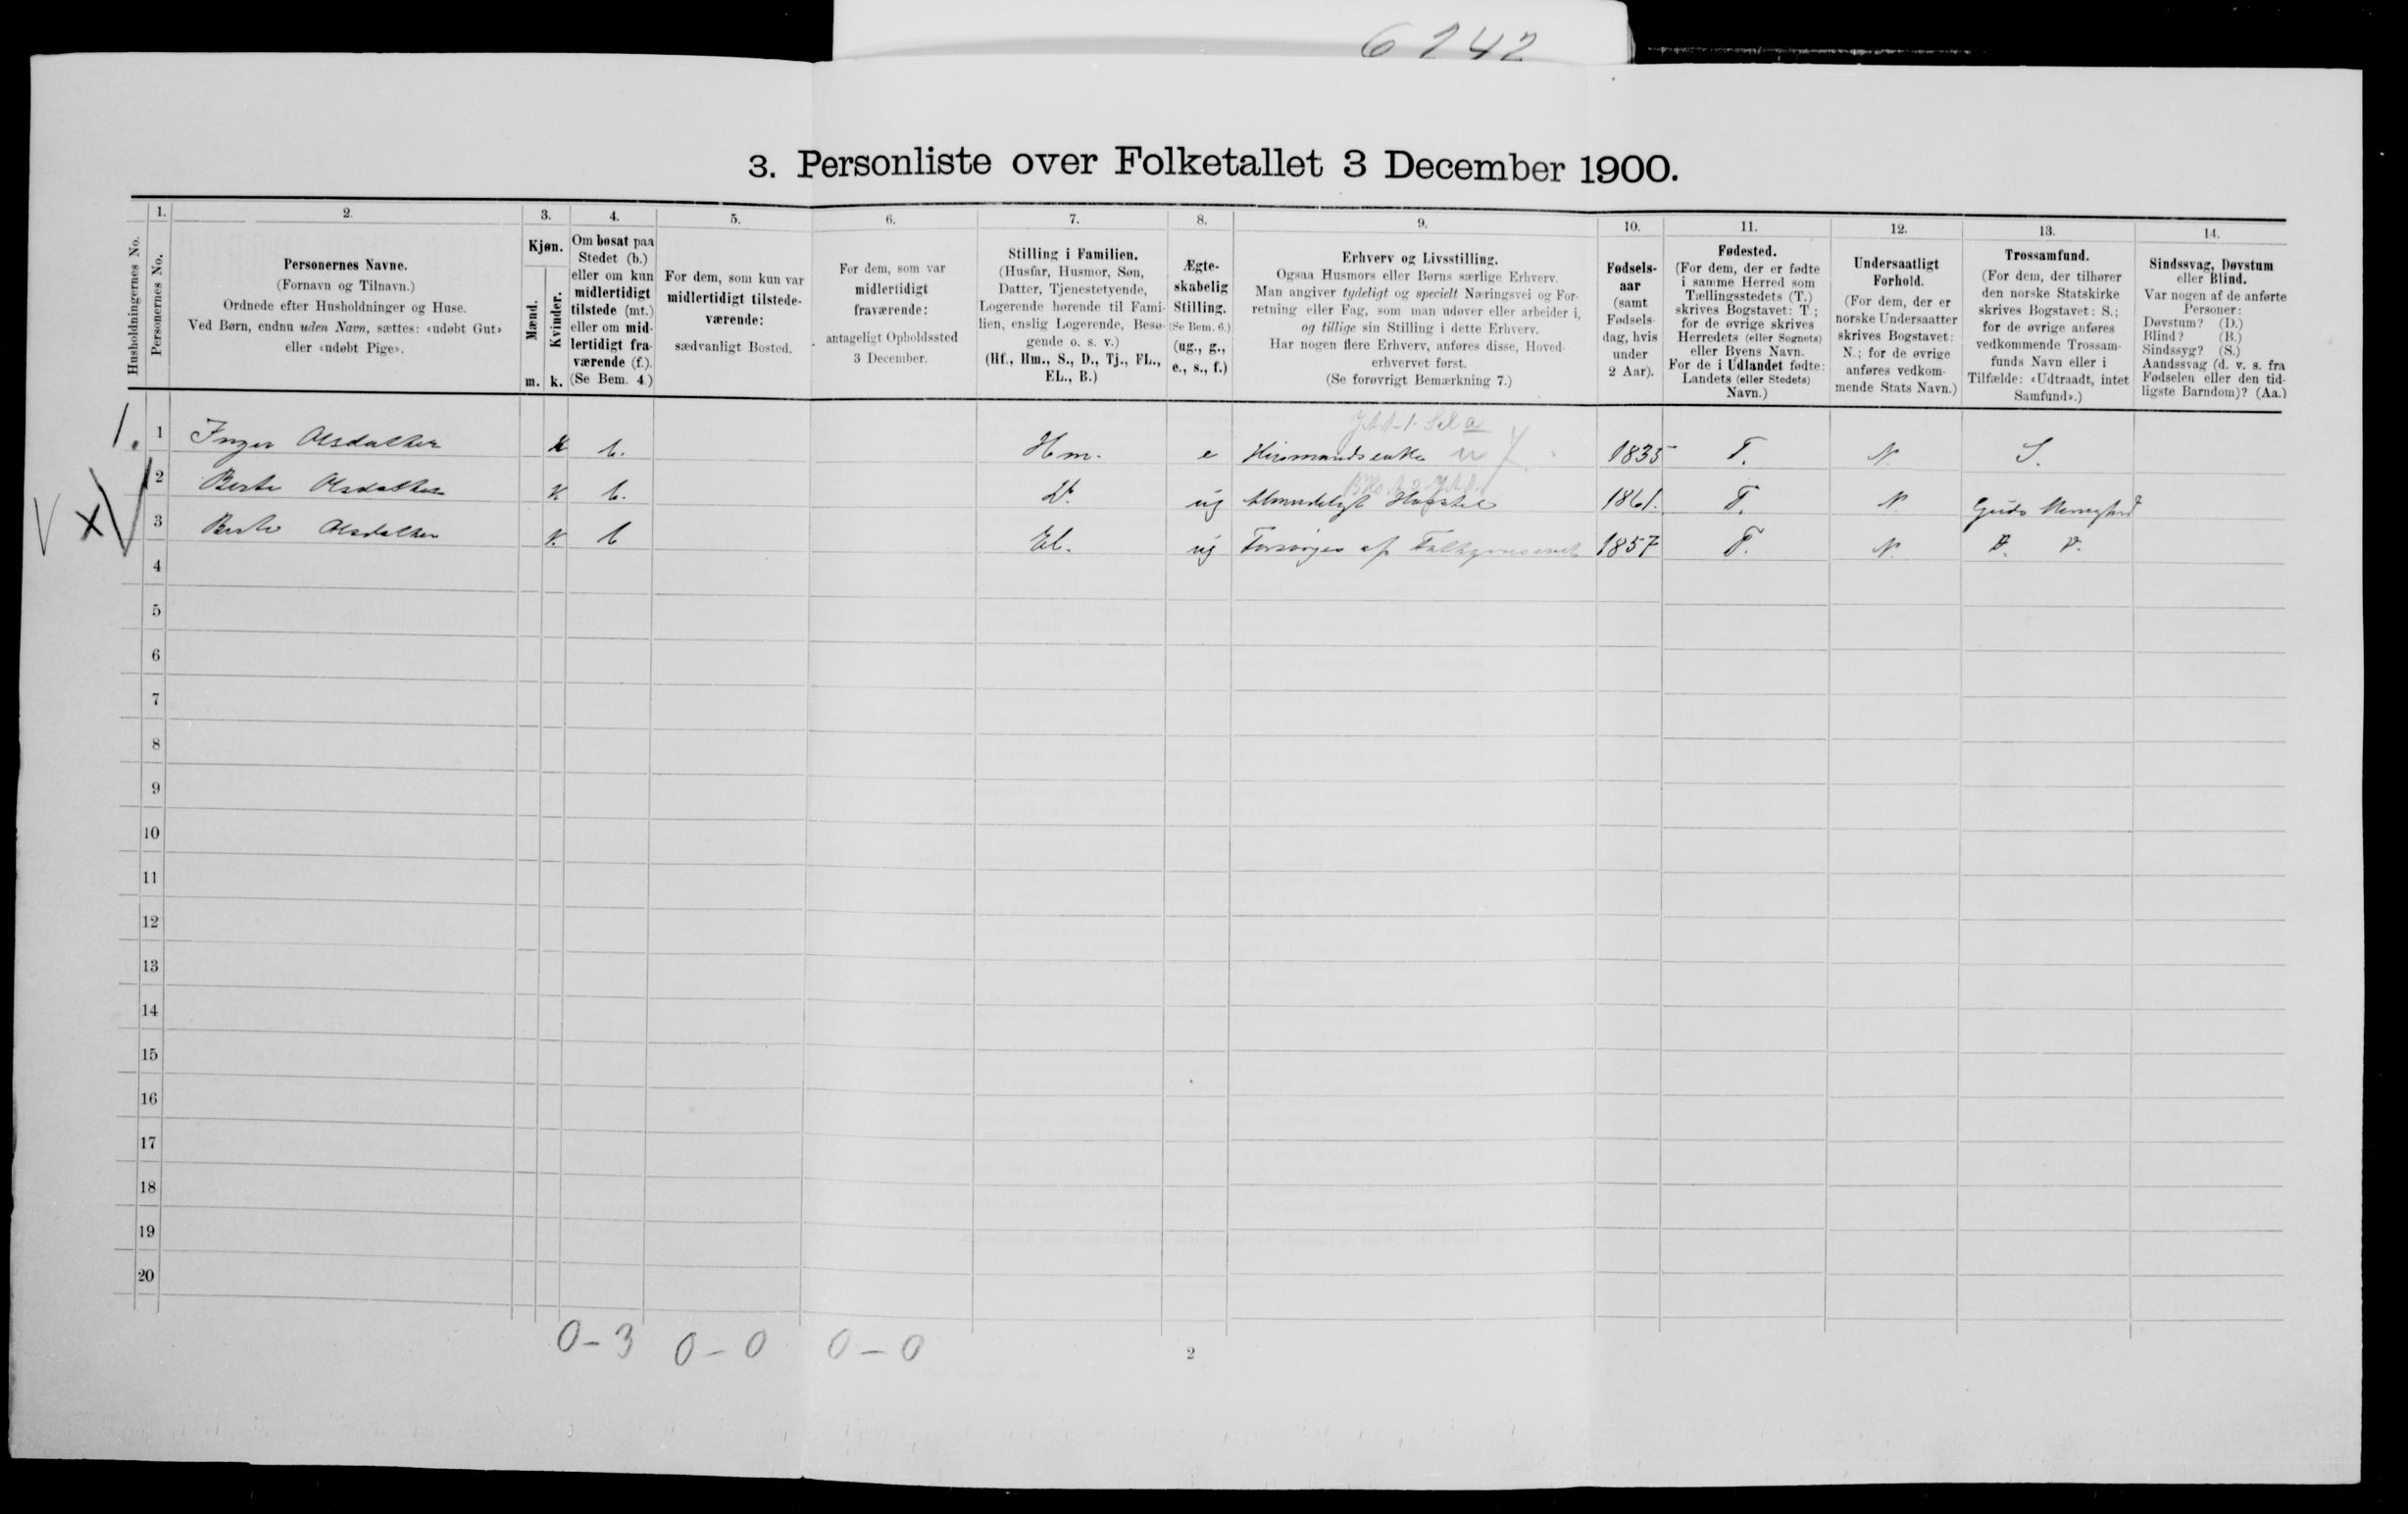 6242
3. Personliste over Folketallet 3 December 1900.
Husholdningernes No.
1.
Personernes No.
2.
Personernes Navne.
(Fornavn og Tilnavn.)
Ordnede efter Husholdninger og Huse.
Ved Børn, endnu uden Navn, sættes: «udøbt Gut»
eller «udøbt Pige».
3.
Kjøn.
Mænd.
Kvinder.
m. k.
4.
Om bosat paa
Stedet (b.)
eller om kun
midlertidigt
tilstede (mt.)
eller om mid-
lertidigt fra-
værende (f.).
(Se Bem. 4.)
5.
For dem, som kun var
midlertidigt tilstede-
værende:
sædvanligt Bosted.
6.
For dem, som var
midlertidigt
fraværende:
antageligt Opholdssted
3 December.
7.
Stilling i Familien.
(Husfar, Husmor, Søn,
Datter, Tjenestetyende,
Logerende hørende til Fami-
lien, enslig Logerende, Besø-
gende o. s. v.)
(Hf., Hm., S., D., Tj., FL.,
EL., B.)
8.
Ægte-
skabelig
Stilling.
(Se Bem. 6.)
(ug., g.,
e., s., f.)
9.
Erhverv og Livsstilling.
Ogsaa Husmors eller Børns særlige Erhverv.
Man angiver tydeligt og specielt Næringsvei og For-
retning eller Fag, som man udøver eller arbeider i,
og tillige sin Stilling i dette Erhverv.
Har nogen flere Erhverv, anføres disse, Hoved-
erhvervet først.
(Se forøvrigt Bemærkning 7.)
10.
Fødsels-
aar
(samt
Fødsels-
dag, hvis
under
2 Aar).
11.
Fødested.
(For dem, der er fødte
i samme Herred som
Tællingsstedets (T.)
skrives Bogstavet: T.;
for de øvrige skrives
Herredets (eller Sognets)
eller Byens Navn.
For de i Udlandet fødte:
Landets (eller Stedets)
Navn.)
12.
Undersaatligt
Forhold.
(For dem, der er
norske Undersaatter
skrives Bogstavet:
N.; for de øvrige
anføres vedkom-
mende Stats Navn.)
13.
Trossamfund.
(For dem, der tilhører
den norske Statskirke
skrives Bogstavet: S.;
for de øvrige anføres
vedkommende Trossam-
funds Navn eller i
Tilfælde: «Udtraadt, intet
Samfund».)
14.
Sindssvag, Døvstum
eller Blind.
Var nogen af de anførte
Personer:
Døvstum? (D.)
Blind? (B.)
Sindssyg? (S.)
Aandssvag (d. v. s. fra
Fødselen eller den tid-
ligste Barndom)? (Aa.)
1. 1 Inger Olsdatter k b. Hm. e 1835 T. N. S.
2 Berte Olsdatter k b. D. ug 1861. T. N. Guds Menighed
3 Berte Olsdatter k. b El. ug Forsørges af Fattigvæsenet 1857 T. N.
4
5
6
7
8
9
10
11
12
13
14
15
16
17
18
19
20
0-3 0-0 0-0
2